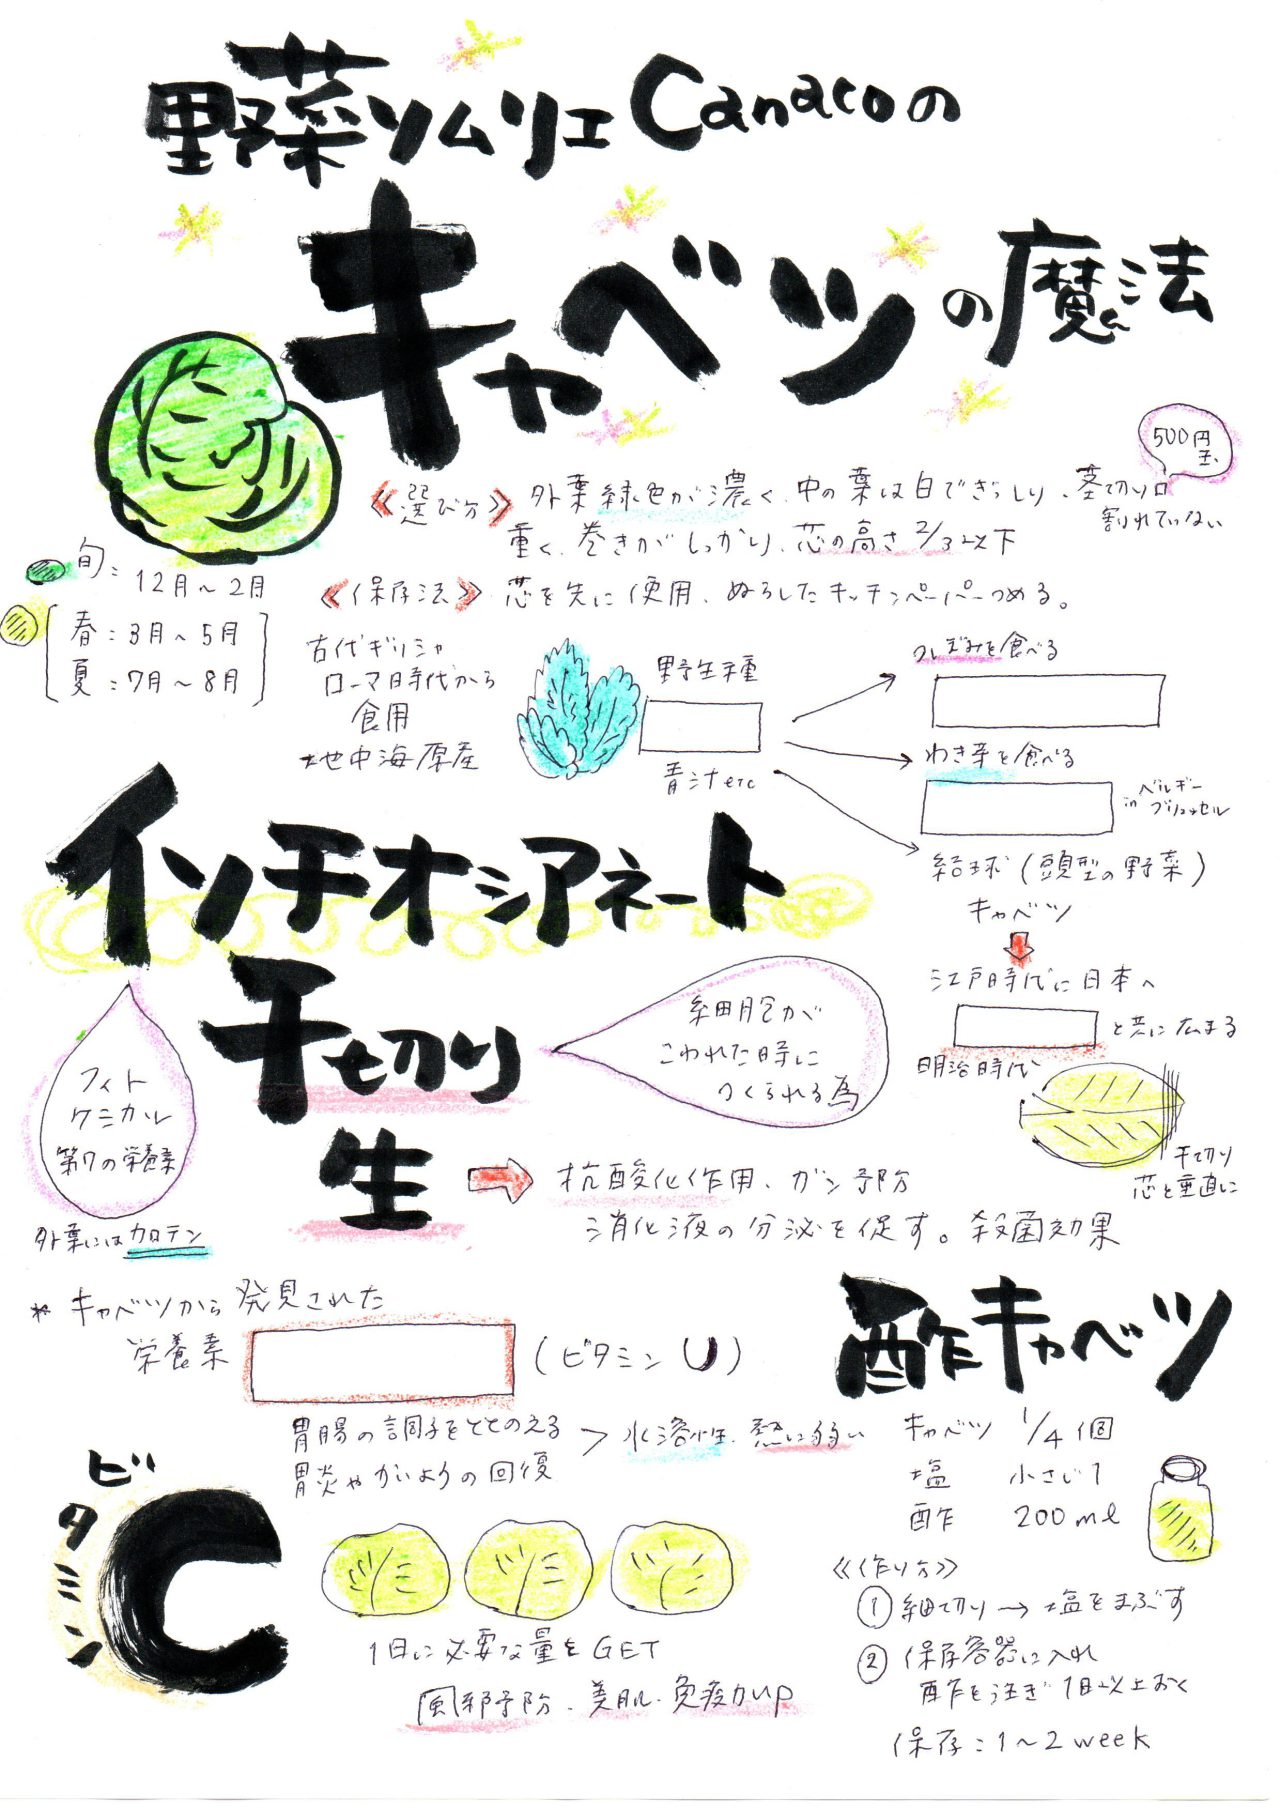 野菜ソムリエCanacoの
キャベツの魔法
500円玉
《選び方》外葉緑色が濃く、中の葉は白でぎっしり、茎切り口
割れていない
重く、巻きがしっかり、芯の高さ2/3以下
旬:12月〜2月
春:3月〜5月
夏:7月〜8月
《保存法》芯を先に使用、ぬらしたキッチンペーパーつめる。
古代ギリシャ
ローマ時代から
食用
地中海原産
野生種
青汁etc
つぼみを食べる
わき芽を食べる
inベルギー
ブリュッセル
結球(頭型の野菜)
キャベツ
江戸時代に日本へ
と共に広まる
明治時代
千切り
芯と垂直に
イソチオシアネート
千切り
生
細胞が
こわれた時に
つくられる為
フィト
ケミカル
第7の栄養素
外葉にはカロテン
抗酸化作用、ガン予防
消化液の分泌を促す。殺菌効果
*キャベツから発見された
栄養素
(ビタミンU)
胃腸の調子をととのえる
胃炎やかいようの回復
>水溶性、熱に弱い
ビタミン
C
1日に必要な量をGET
風邪予防、美肌、免疫力up
酢キャベツ
キャベツ 1/4個
塩 小さじ1
酢 200ml
《作り方》
①細切り→塩をまぶす
②保存容器に入れ
酢を注ぎ1日以上おく
保存:1〜2week